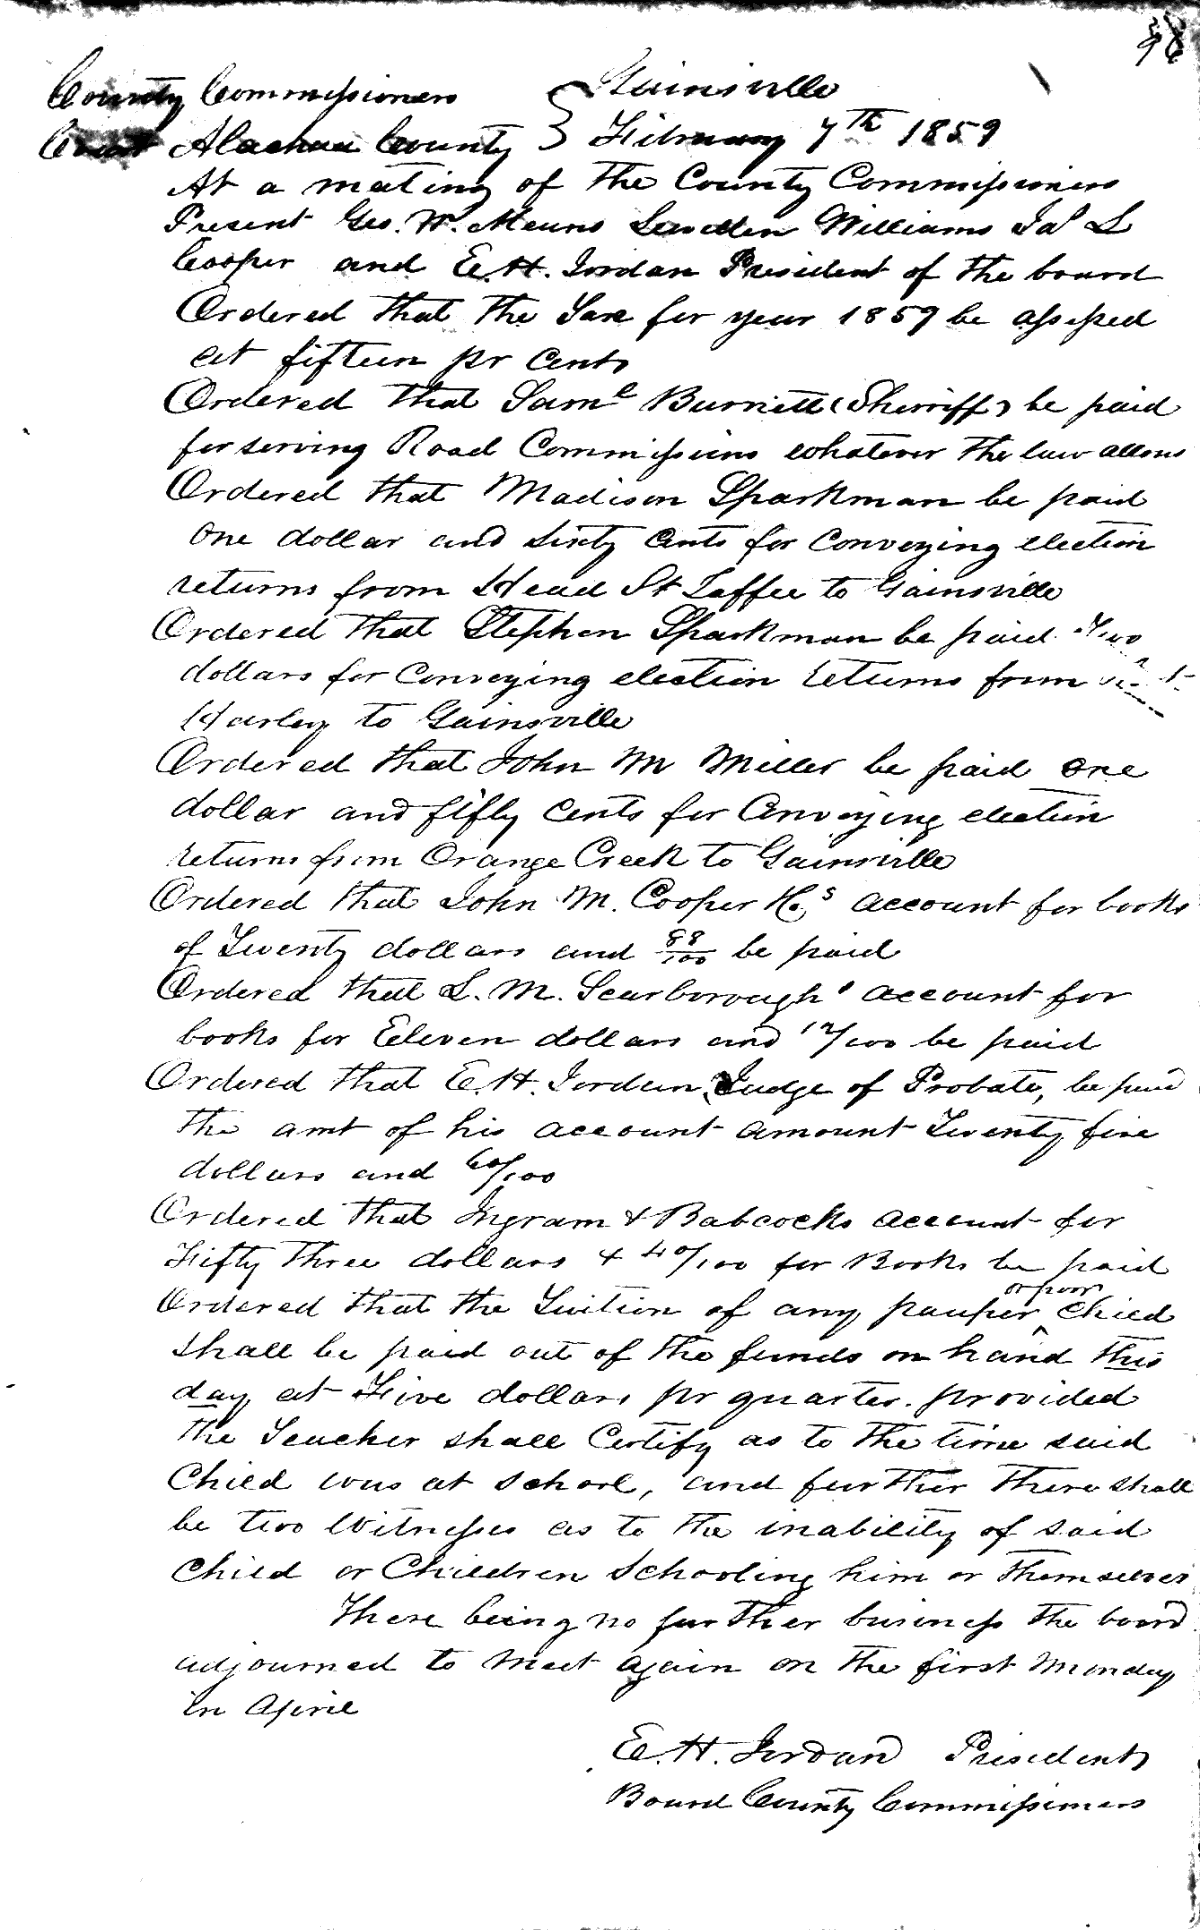 County Commissioners } Gainsville
Court Alachua County } February 7th 1859
At a meting of the County Commissioners
Present Geo. W. Means Lewellen Williams Jas L
Cooper and E. H. Jordan President of the board
Ordered that the Tax for year 1859 be assessed
at fifteen pr cents
Ordered that Saml Burnett (Sherriff) be paid
for serving Road Commissions whatever the law allows
Ordered that Madison Sparkman be paid
One dollar and sixty cents for conveying election
returns from Head St Taffee to Gainsville
Ordered that Stephen Sparkman be paid Two
dollars for conveying election returns from
Harley to Gainsville
Ordered that John M Miller be paid one
dollar and fifty cents for Conveying election
returns from Orange Creek to Gainsville
Ordered that John M. Cooper &Co.s account for books
of Twenty dollars and 88/100 be paid
Ordered that L. M. Scarborough's account for
books for Eleven dollars and 12/100 be paid
Ordered that E. H. Jordan, Judge of Probate, be paid
the amt of his account amount Twenty five
dollars and 60/100
Ordered that Ingram & Babcocks account for
Fifty three dollars & 40/100 for Books be paid
Ordered that the Tuition of any pauper ^or poor Child
shall be paid out of the funds on hand this
day at Five dollars pr quarter. provided
the Teacher shall Certify as to the time said
Child was at school, and further there shall
be two Witnesses as to the inability of said
Child or Children Schooling him or themselves
There being no further business the board
adjourned to meet again on the first Monday
in April
E. H. Jordan President
Board County Commissioners